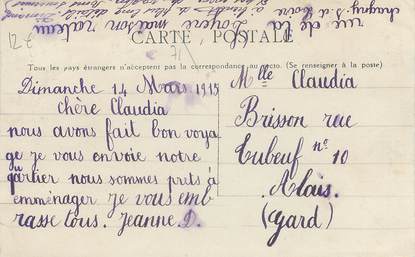 CARTE POSTALE
Tous les pays étrangers n'acceptent pas la correspondance au recto. (Se renseigner à la poste)
Dimanche 14 Mars 1915
chère Claudia
nous avons fait bon voya
ge je vous envoie notre
quartier nous sommes prets à
emménager je vous emb
rasse tous. Jeanne D.
Melle Claudia
Brisson rue
Tubeuf no 10
Alais.
(Gard)
rue de la
Loyère maison rateau